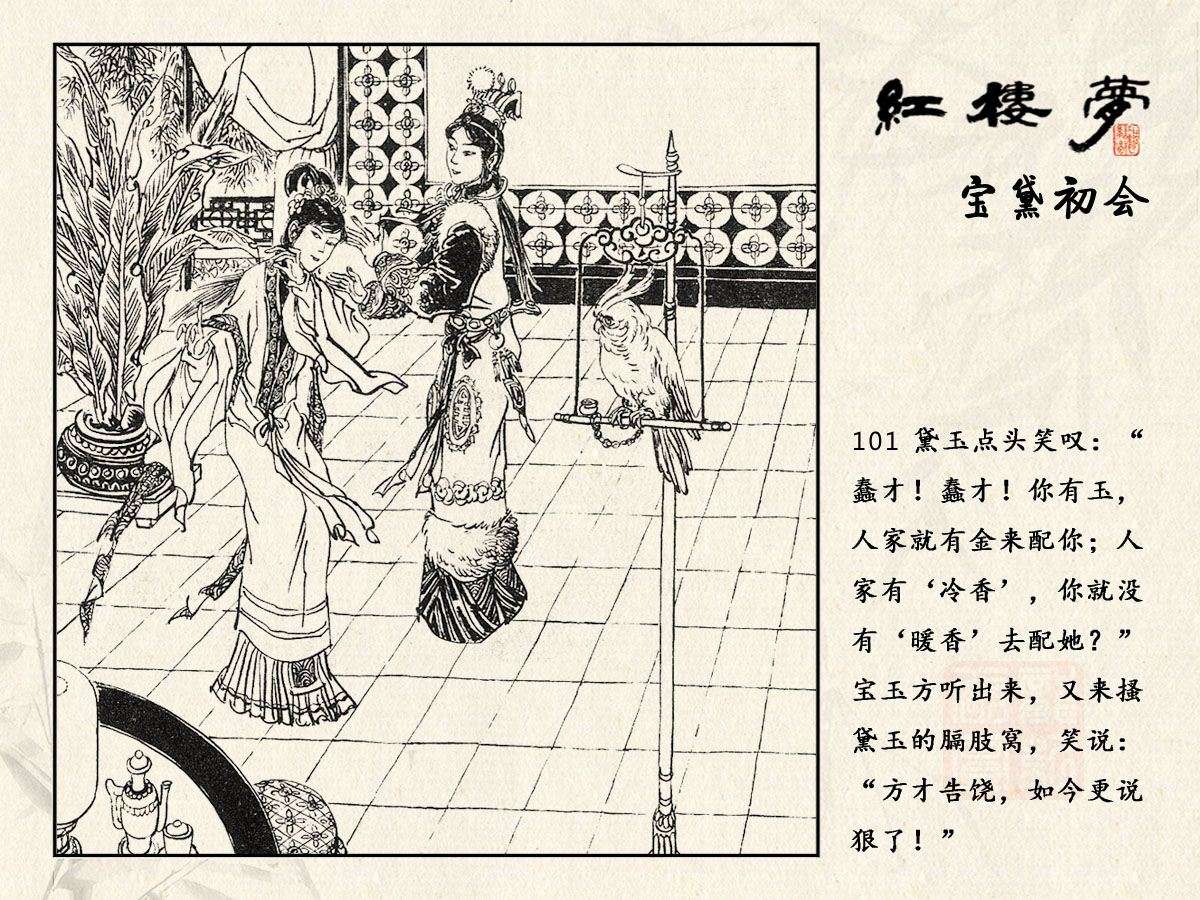 紅樓夢
宝黛初会
101 黛玉点头笑叹：“
蠢才！蠢才！你有玉，
人家就有金来配你；人
家有‘冷香’，你就没
有‘暖香’去配她？”
宝玉方听出来，又来搔
黛玉的膈肢窝，笑说：
“方才告饶，如今更说
狠了！”